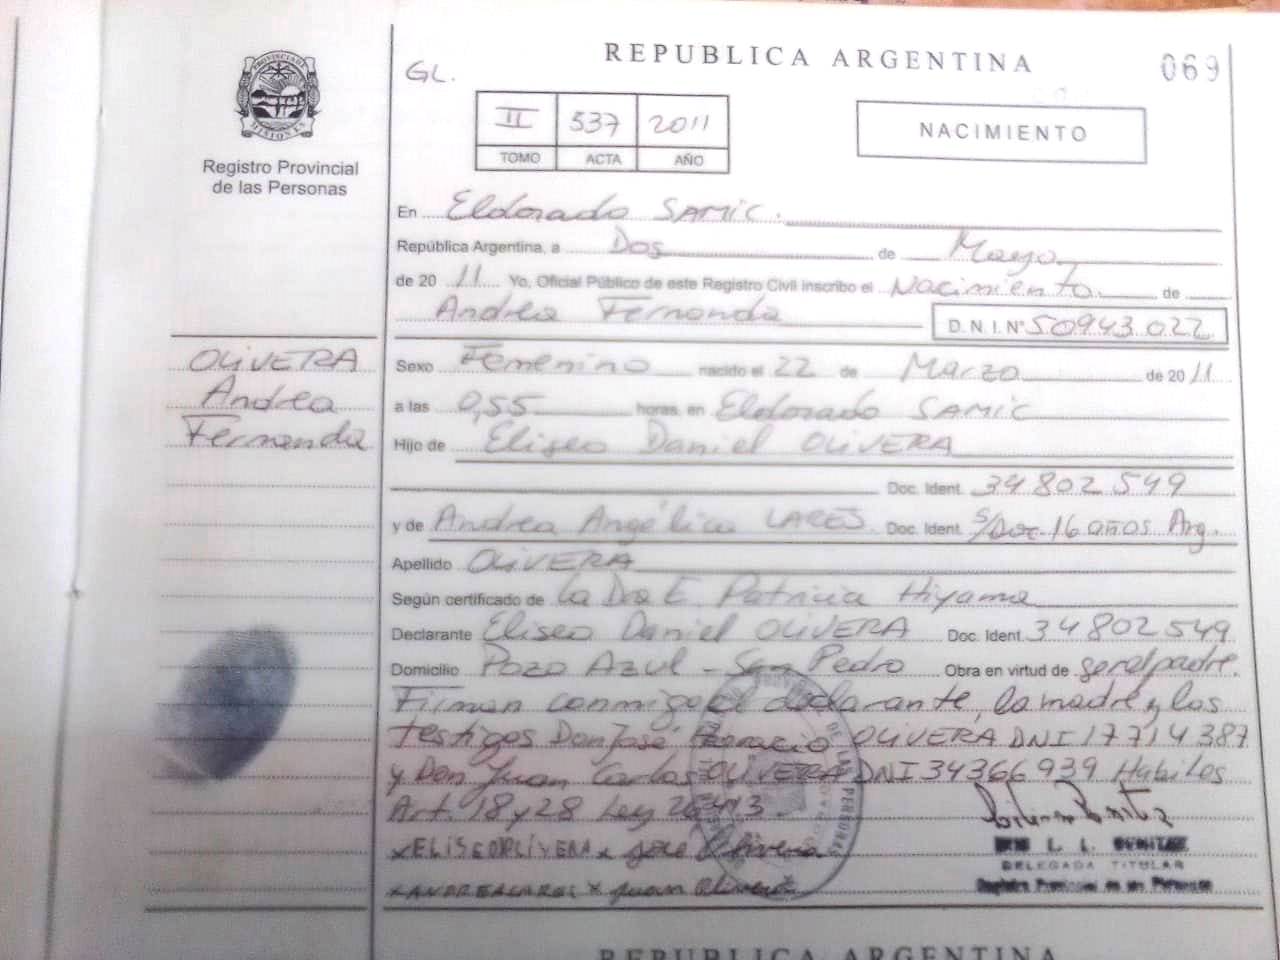 REPUBLICA ARGENTINA
069
GL.
PROVINCIA DE MISIONES
Registro Provincial
de las Personas
II 537 2011
TOMO ACTA AÑO
NACIMIENTO
En Eldorado SAMIC.
República Argentina, a Dos de Mayo
de 20 11 Yo, Oficial Público de este Registro Civil inscribo el Nacimiento de
Andrea Fernanda D.N.I. Nº 50943.022
OLIVERA
Andrea
Fernanda
Sexo Femenino nacido el 22 de Marzo de 20 11
a las 0,55 horas, en Eldorado SAMIC
Hijo de Eliseo Daniel OLIVERA
Doc. Ident. 34 802 549
y de Andrea Angélica LARES Doc. Ident. s/Doc. 16 años Arg.
Apellido OLIVERA
Según certificado de la Dra E. Patricia Hiyama
Declarante Eliseo Daniel OLIVERA Doc. Ident. 34802549
Domicilio Pozo Azul - San Pedro Obra en virtud de ser el padre.
Firman conmigo el declarante, la madre y los
testigos Don José Horacio OLIVERA DNI 17714387
y Don Juan Carlos OLIVERA DNI 34366939 Habiles
Art. 18 y 28 Ley 26413.
x ELISEO OLIVERA x José Olivera
x ANDREA LARES x Juan Olivera
L. L. BENITEZ
DELEGADA TITULAR
Registro Provincial de las Personas
REPUBLICA ARGENTINA